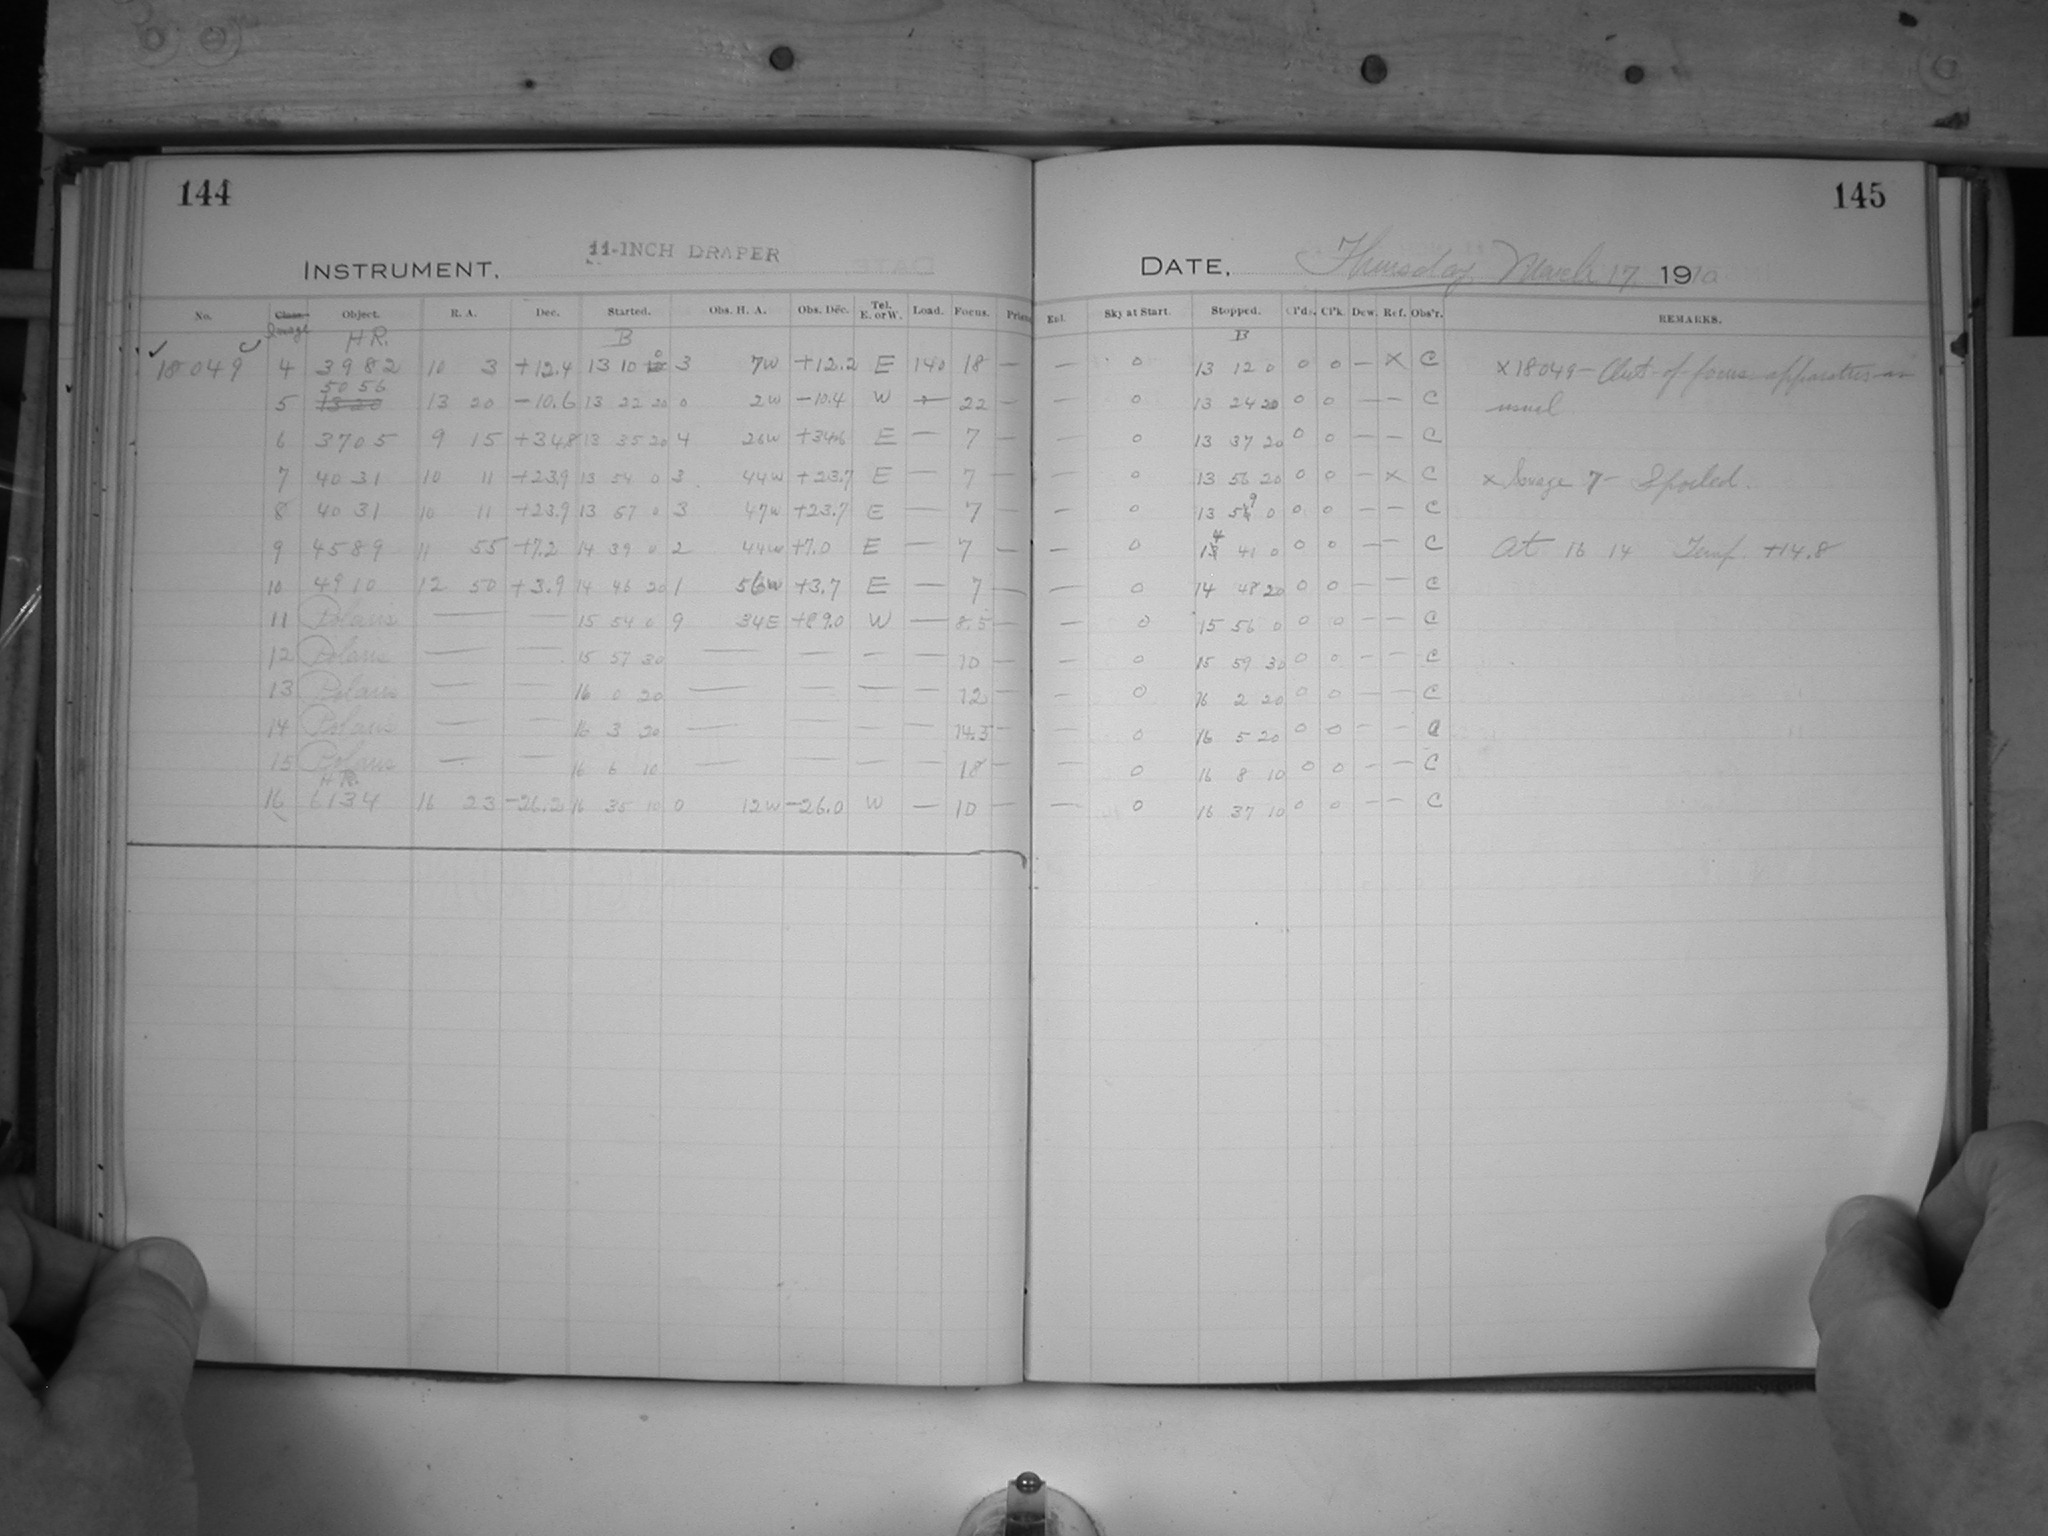 144
INSTRUMENT. 11-INCH DRAPER
No. Class. Object. R. A. Dec. Started. Obs. H. A. Obs. Dec. Tel. E. or W. Load. Focus. Prism
Image HR. B
18049 4 3982 10 3 +12.4 13 10 0 3 7w +12.2 E 140 18 —
5056
5 13 20 13 20 -10.6 13 22 20 0 2w -10.4 W — 22 —
6 3705 9 15 +34.8 13 35 20 4 26w +34.6 E — 7 —
7 4031 10 11 +23.9 13 54 0 3 44w +23.7 E — 7 —
8 4031 10 11 +23.9 13 57 0 3 47w +23.7 E — 7 —
9 4589 11 55 +7.2 14 39 0 2 44w +7.0 E — 7 —
10 4910 12 50 +3.9 14 46 20 1 56w +3.7 E — 7 —
11 Polaris — — 15 54 0 9 34E +89.0 W — 8.5 —
12 Polaris — — 15 57 30 — — — — 10 —
13 Polaris — — 16 0 20 — — — — 12 —
14 Polaris — — 16 3 20 — — — — 14.5 —
15 Polaris — — 16 6 10 — — — — 18 —
HR.
16 6134 16 23 -26.2 16 35 10 0 12w -26.0 W — 10 —
145
DATE, Thursday March 17, 1910
Enl. Sky at Start. Stopped. Cl'ds. Cl'k. Dew. Ref. Obs'r. REMARKS.
B
— 0 13 12 0 0 0 — x C x 18049 – Out of focus apparatus as
— 0 13 24 20 0 0 — — C usual.
— 0 13 37 20 0 0 — — C
— 0 13 56 20 0 0 — x C x Image 7 – Spoiled.
— 0 13 59 0 0 0 — — C
— 0 14 41 0 0 0 — — C At 16 14 Temp. +14.8
— 0 14 48 20 0 0 — — C
— 0 15 56 0 0 0 — — C
— 0 15 59 30 0 0 — — C
— 0 16 2 20 0 0 — — C
— 0 16 5 20 0 0 — — C
— 0 16 8 10 0 0 — — C
— 0 16 37 10 0 0 — — C